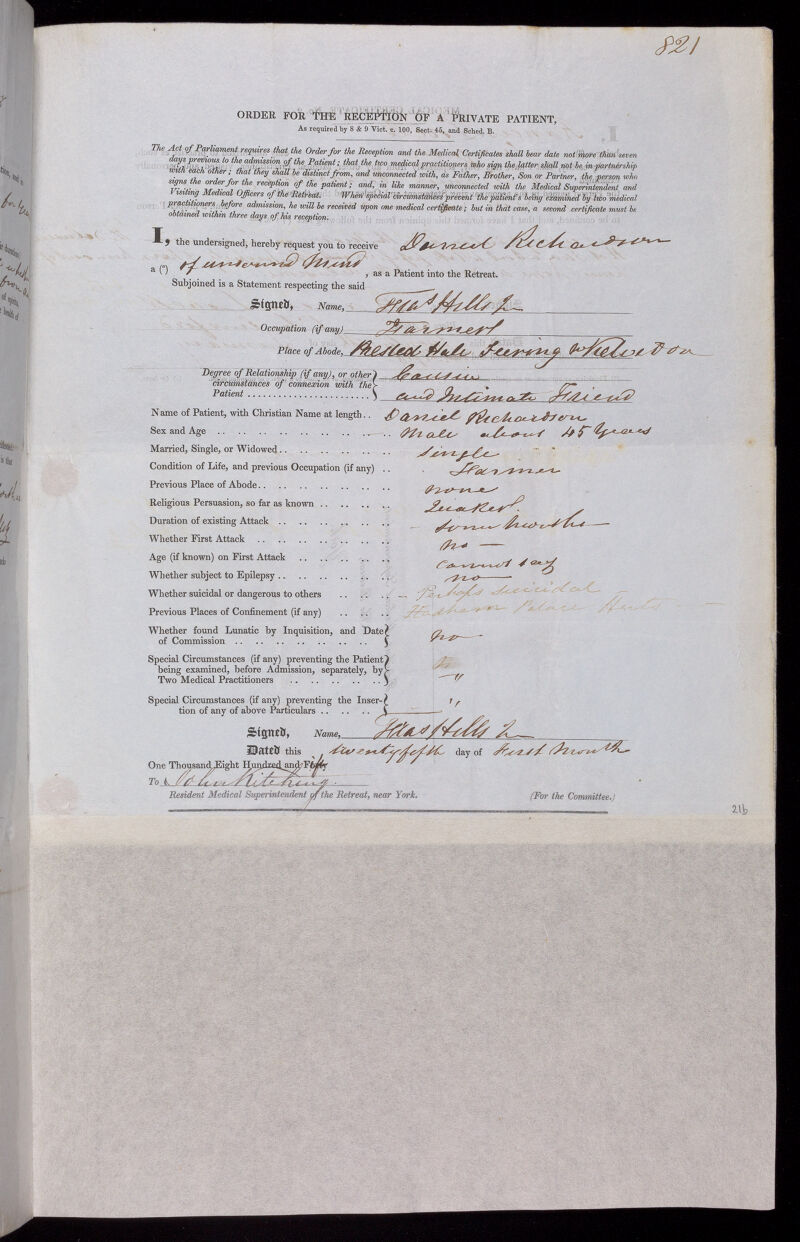 821
ORDER FOR THE RECEPTION OF A PRIVATE PATIENT,
As required by 8 & 9 Vict. c. 100, Sect. 45, and Sched. B.
The Act of Parliament requires that the Order for the Reception and the Medical Certificates shall bear date not more than seven
days previous to the admission of the Patient; that the two medical practitioners who sign the latter shall not be in partnership
with each other; that they shall be distinct from, and unconnected with, as Father, Brother, Son or Partner, the person who
signs the order for the reception of the patient; and, in like manner, unconnected with the Medical Superintendent and
Visiting Medical Officers of the Retreat. When special circumstances prevent the patient's being examined by two medical
practitioners before admission, he will be received upon one medical certificate; but in that case, a second certificate must be
obtained within three days of his reception.
I, the undersigned, hereby request you to receive Daniel Richardson
a (a) of unsound Mind, as a Patient into the Retreat.
Subjoined is a Statement respecting the said
Signed, Name, Fras Hills Jr
Occupation (if any) Farmer
Place of Abode, Prested Hall Feering Kelvedon
Degree of Relationship (if any), or other circumstances of connexion with the Patient Cousin
and Intimate Friend
Name of Patient, with Christian Name at length Daniel Richardson
Sex and Age Male about 45 Years
Married, Single, or Widowed single
Condition of Life, and previous Occupation (if any) Farmer
Previous Place of Abode none
Religious Persuasion, so far as known Quaker
Duration of existing Attack some Months
Whether First Attack no
Age (if known) on First Attack cannot say
Whether subject to Epilepsy no
Whether suicidal or dangerous to others Perhaps suicidal
Previous Places of Confinement (if any) Palace Herts
Whether found Lunatic by Inquisition, and Date of Commission no
Special Circumstances (if any) preventing the Patient being examined, before Admission, separately, by Two Medical Practitioners "
Special Circumstances (if any) preventing the Insertion of any of above Particulars "
Signed, Name, Fras Hills Jr
Dated this twenty fifth day of First Month
One Thousand Eight Hundred and Fifty
To John Kitching
Resident Medical Superintendent of the Retreat, near York. (For the Committee.)
216